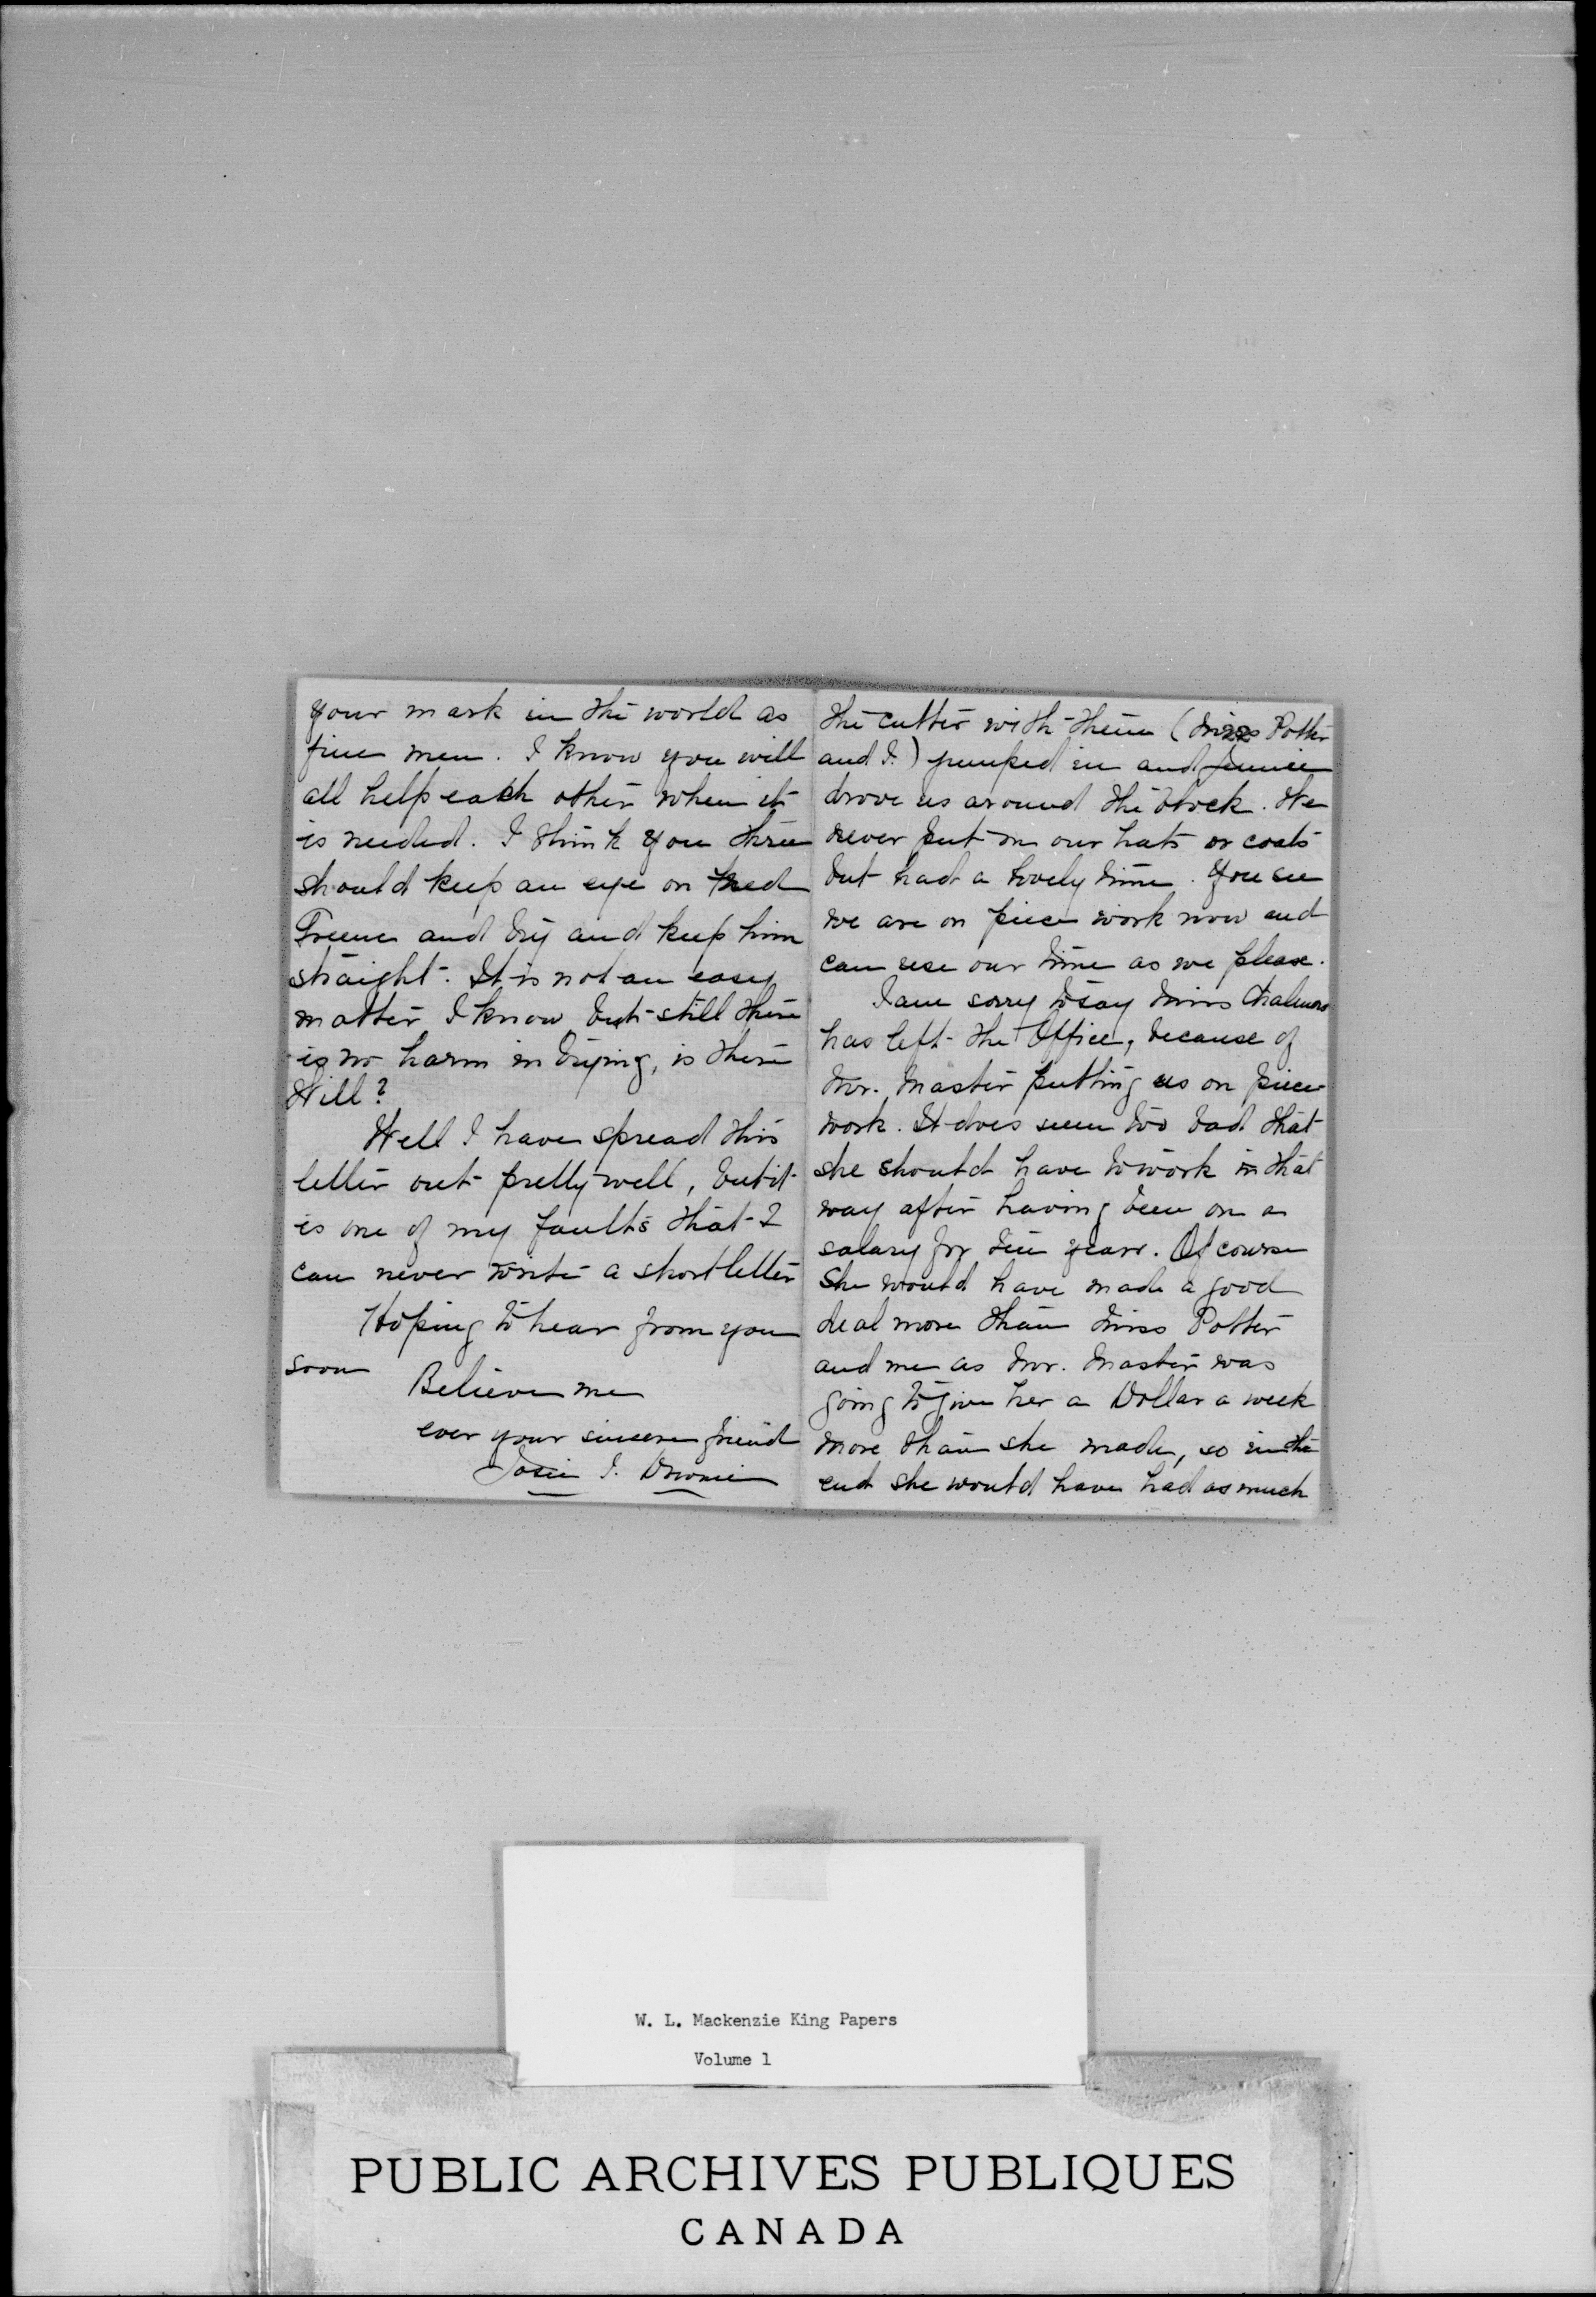 your mark in the world as
fine men. I know you will
all help each other when it
is needed. I think you three
should keep an eye on Fred
Greene and try and keep him
straight. It is not an easy
matter I know but still there
is no harm in trying, is there
Will?
Well I have spread this
letter out pretty well, but it
is one of my faults that I
can never write a short letter
Hoping to hear from you
soon
Believe me
ever your sincere friend
Josie I. Downie
the cutter with them (Miss Potter
and I.) jumped in and
drove us around the block. We
never put on our hats or coats
but had a lovely time. You see
we are on piece work now and
can use our time as we please.
I am sorry to say Miss Chalmers
has left the Office, because of
Mr. Master putting us on piece
work. It does seem too bad that
she should have to work in that
way after having been on a
salary for ten years. Of course
she would have made a good
deal more than Miss Potter
and me as Mr. Master was
going to give her a Dollar a week
more than she made, so in the
end she would have had as much
W. L. Mackenzie King Papers
Volume 1
PUBLIC ARCHIVES PUBLIQUES
CANADA